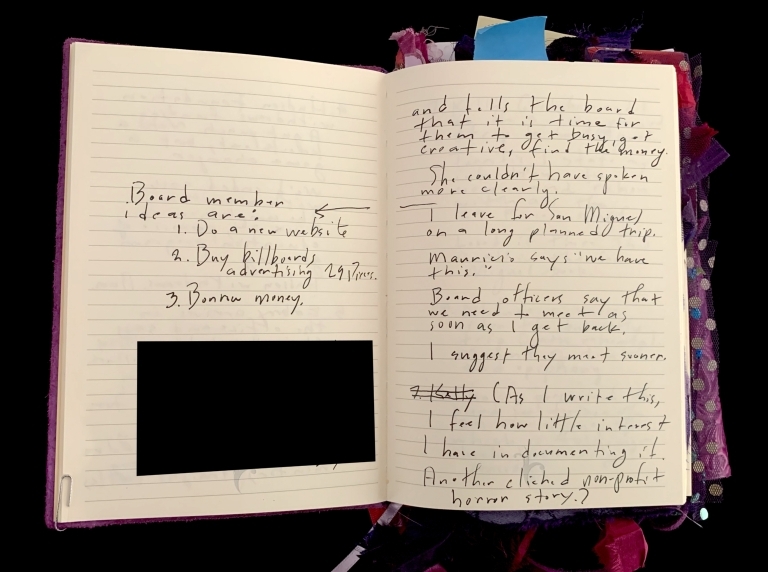 Board member
ideas are:
1. Do a new website
2. Buy billboards
advertising 29 Pines.
3. Borrow money.
and tells the board
that it is time for
them to get busy, get
creative, find the money.
She couldn't have spoken
more clearly.
I leave for San Miguel
on a long planned trip.
Mauricio says "we have
this."
Board officers say that
we need to meet as
soon as I get back.
I suggest they meet sooner.
(As I write this,
I feel how little interest
I have in documenting it.
Another cliched non-profit
horror story.?